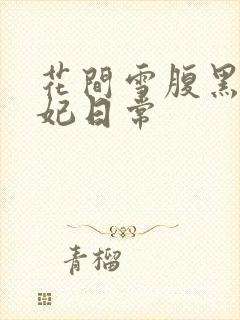 花間雪腹黑
妃日常
青榴